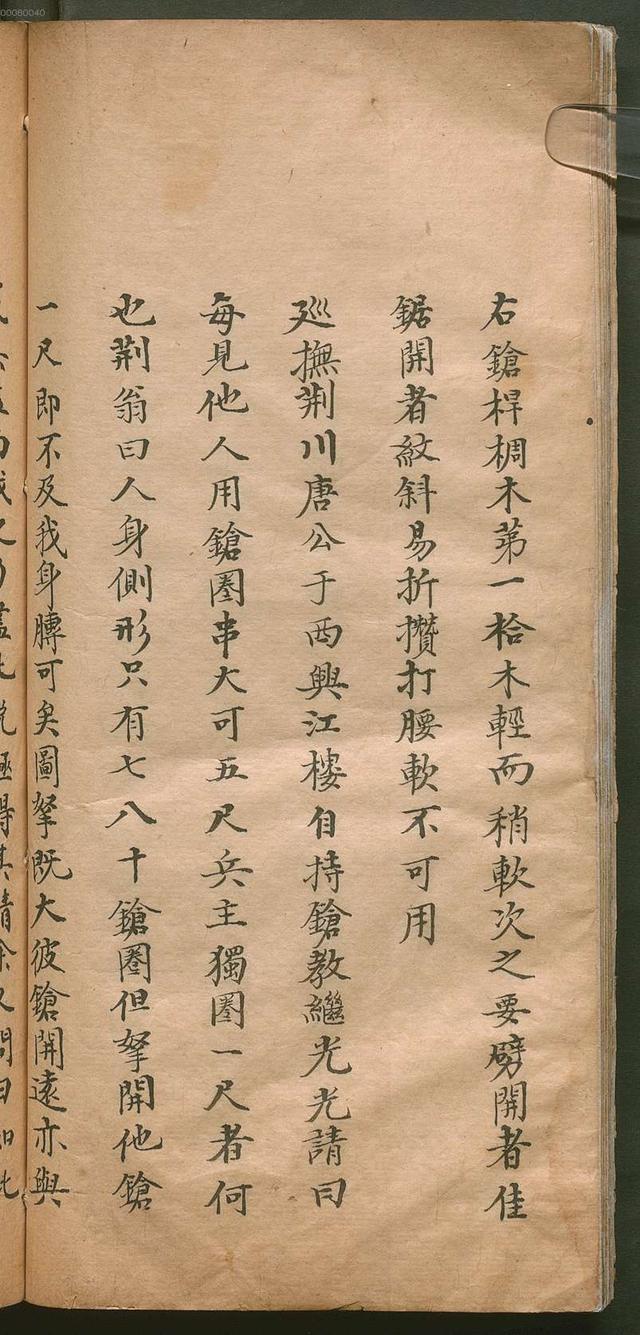 右鎗桿椆木苐一㭘木輕而稍軟次之要劈開者佳
鋸開者紋斜易折攢打腰軟不可用
廵撫荆川唐公于西興江樓自持鎗教繼光光請曰
每見他人用鎗圈串大可五尺兵主獨圈一尺者何
也荆翁曰人身側形只有七八寸鎗圈但拏開他鎗
一尺即不及我身膊可矣圖拏既大彼鎗開遠亦與
00080040